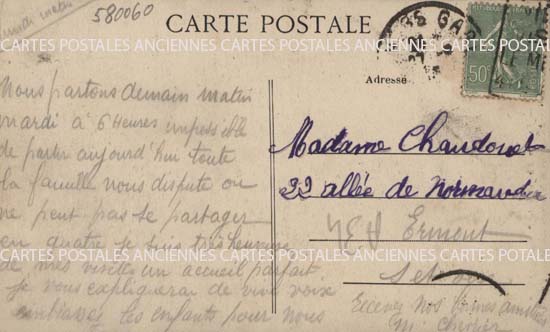 lundi matin
580060
CARTE POSTALE
CARTES POSTALES ANCIENNES CARTES POSTALES ANCIENNES CARTES POSTALES
GARE
50
Adressé
Nous partons demain matin
mardi à 6 Heures impossible
de partir aujourd'hui toute
la famille nous dispute on
ne peut pas se partager
en quatre je suis très heureuse
de mes visites un accueil parfait
je vous expliquerai de vive voix
embrasser les enfants pour nous
Madame Chaudouet
22 allée de Normandie
Ermont
S et Oise
Recevez nos bonnes amitiés
M.
CARTES POSTALES ANCIENNES CARTES POSTALES ANCIENNES CARTES POSTALES